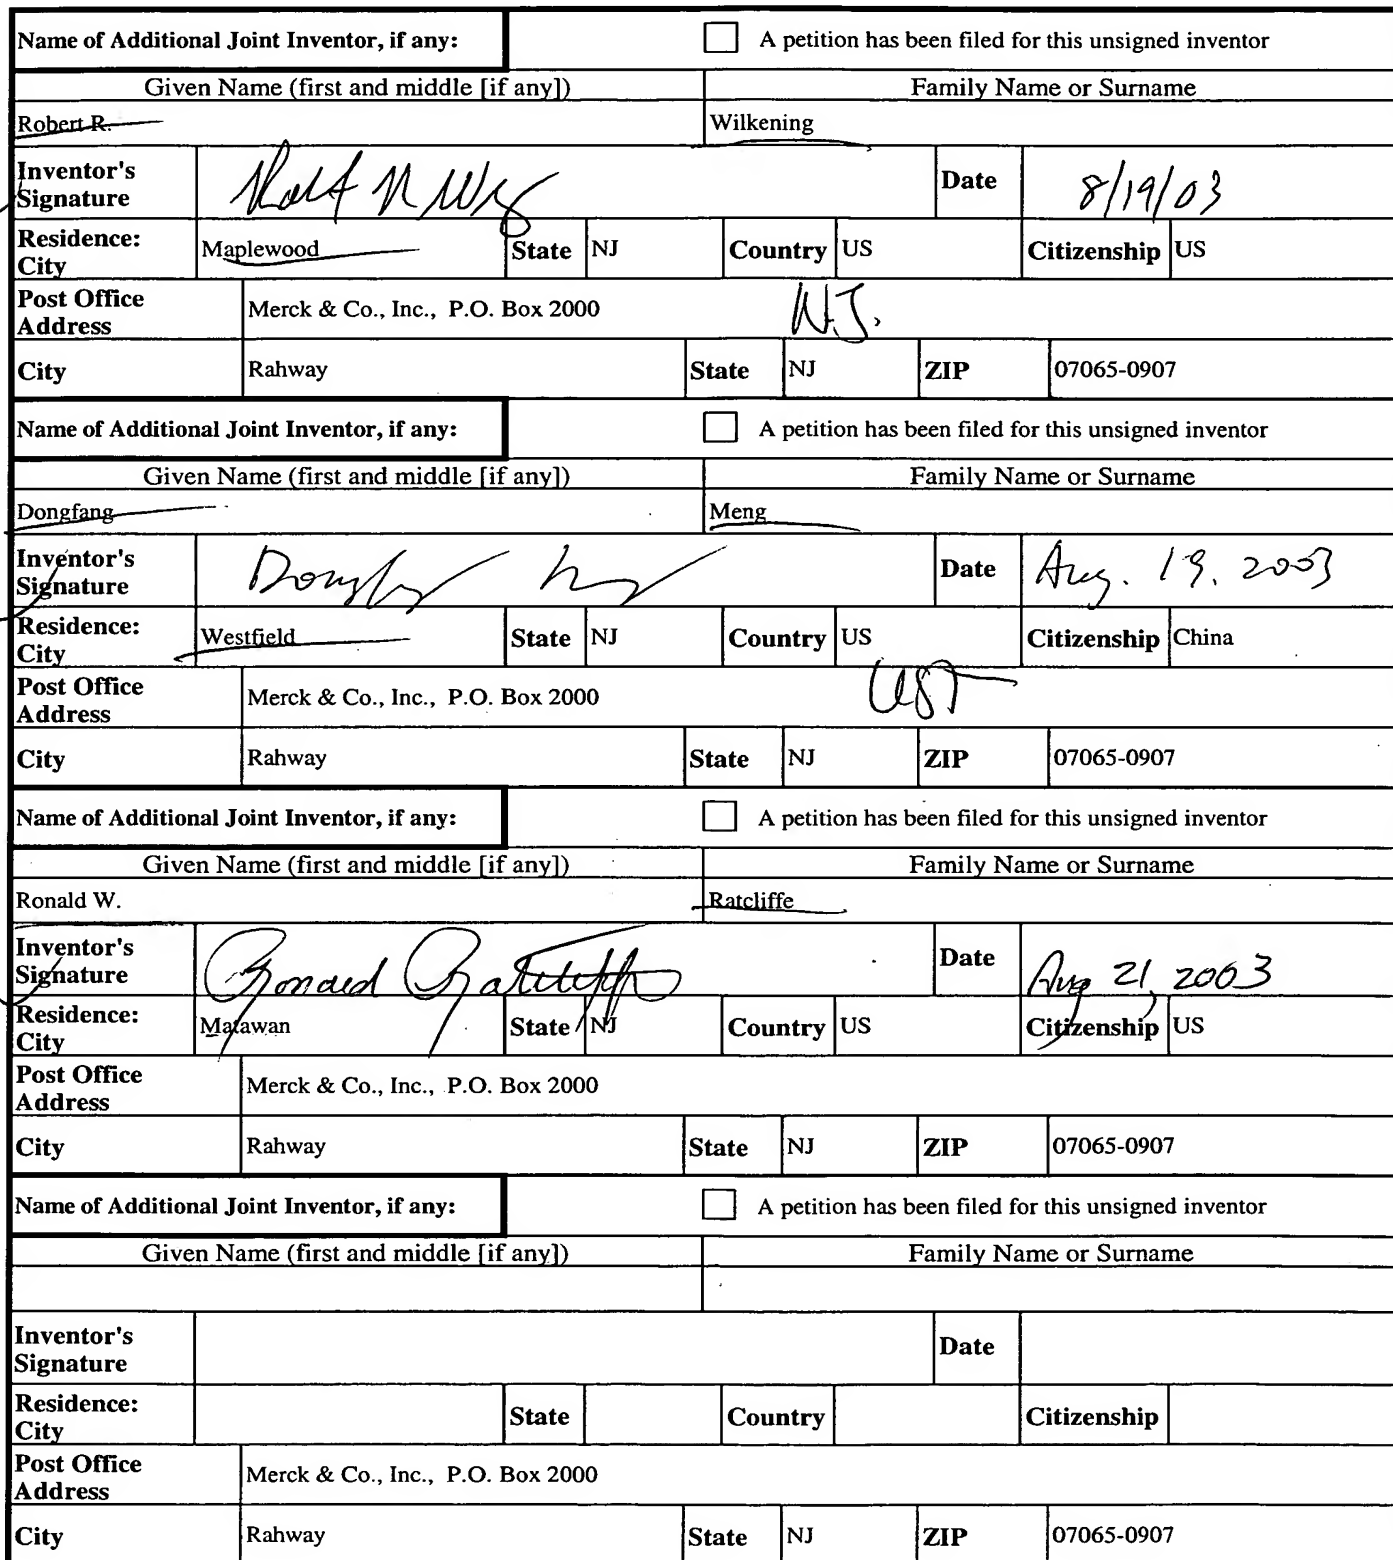 Name of Additional Joint Inventor, if any: A petition has been filed for this unsigned inventor
Given Name (first and middle [if any]) Family Name or Surname
Robert R. Wilkening
Inventor's Signature Date 8/19/03
Residence: City Maplewood State NJ Country US Citizenship US
Post Office Address Merck & Co., Inc., P.O. Box 2000 N.J.
City Rahway State NJ ZIP 07065-0907
Name of Additional Joint Inventor, if any: A petition has been filed for this unsigned inventor
Given Name (first and middle [if any]) Family Name or Surname
Dongfang Meng
Inventor's Signature Date Aug. 19. 2003
Residence: City Westfield State NJ Country US Citizenship China
Post Office Address Merck & Co., Inc., P.O. Box 2000
City Rahway State NJ ZIP 07065-0907
Name of Additional Joint Inventor, if any: A petition has been filed for this unsigned inventor
Given Name (first and middle [if any]) Family Name or Surname
Ronald W. Ratcliffe
Inventor's Signature Ronald Ratcliffe Date Aug 21, 2003
Residence: City Matawan State NJ Country US Citizenship US
Post Office Address Merck & Co., Inc., P.O. Box 2000
City Rahway State NJ ZIP 07065-0907
Name of Additional Joint Inventor, if any: A petition has been filed for this unsigned inventor
Given Name (first and middle [if any]) Family Name or Surname
Inventor's Signature Date
Residence: City State Country Citizenship
Post Office Address Merck & Co., Inc., P.O. Box 2000
City Rahway State NJ ZIP 07065-0907